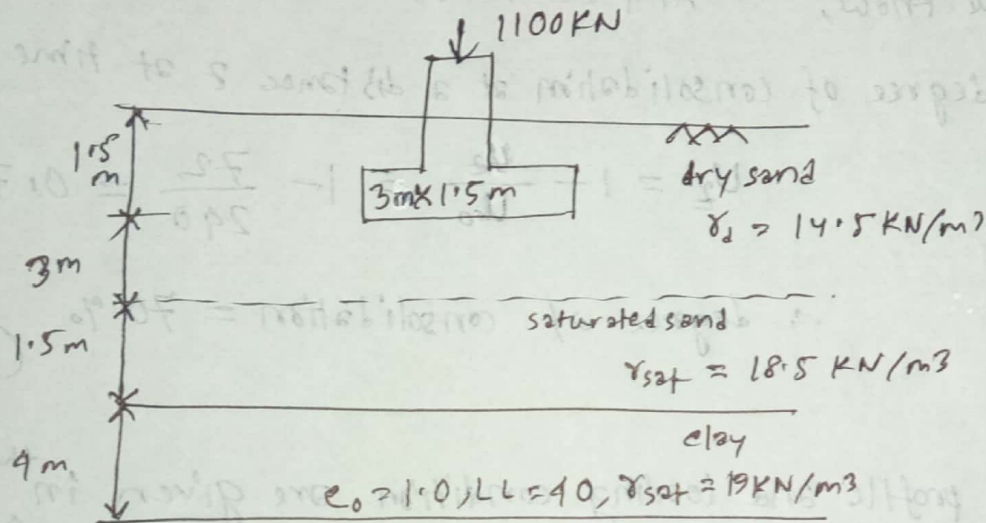 1100KN
1.5
m
3m
1.5m
4m
3m x 1.5m
dry sand
γd = 14.5 KN/m3
saturated sand
γsat = 18.5 KN/m3
clay
e₀ = 1.0, LL = 40, γsat = 19KN/m3